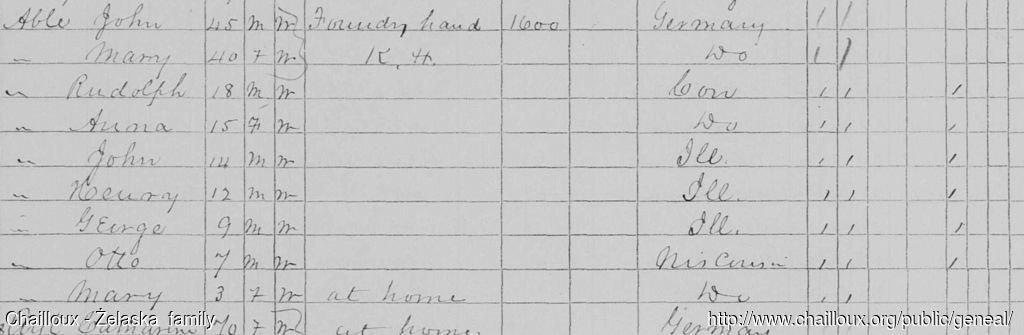 Able John 45 M W Foundry hand 1600 Germany / /
" Mary 40 F W K. H. Do / /
" Rudolph 18 M W Con / / /
" Anna 15 F W Do / / /
" John 14 M W Ill. / / /
" Henry 12 M W Ill. / / /
" George 9 M W Ill. / / /
" Otto 7 M W Wisconsin / / /
" Mary 3 F W at home Do / /
Catharine 70 F W at home Germany
Chailloux - Żelaska family http://www.chailloux.org/public/geneal/